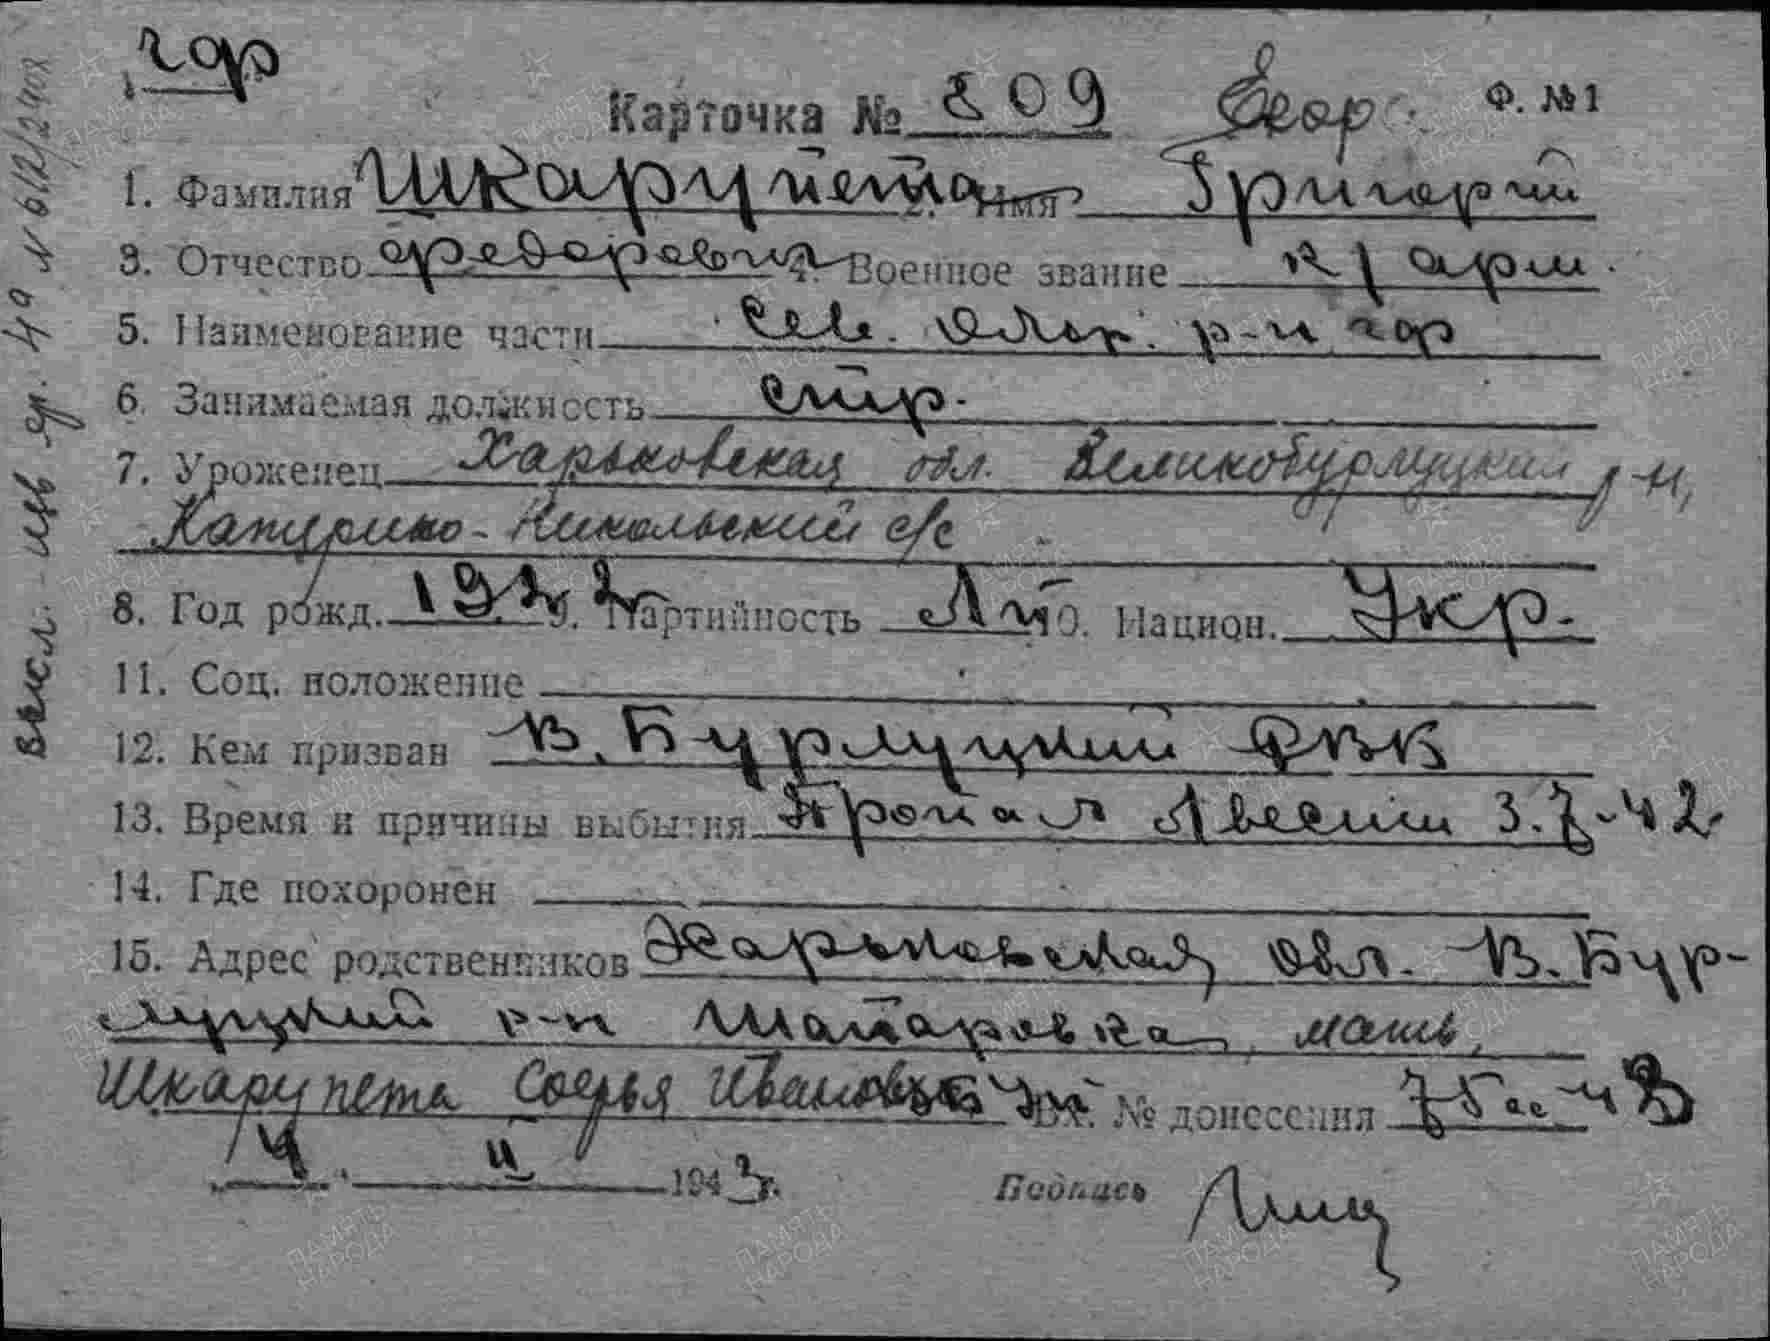 чф
Карточка № 809 Егор Ф. №1
1. Фамилия Шкарупета 2. Имя Григорий
3. Отчество Федорович 4. Военное звание кр арм.
5. Наименование части Сев. р-н чф
6. Занимаемая должность стр.
7. Уроженец Харьковская обл. Великобурлуцкий р-н,
Катерино-Никольский с/с
8. Год рожд. 1922 9. Партийность 10. Национ. Укр.
11. Соц. положение
12. Кем призван В. Бурлуцкий РВК
13. Время и причины выбытия Пропал без вести 3.7.42
14. Где похоронен
15. Адрес родственников Харьковская обл. В. Бур-
луцкий р-н Шапаровка, мать,
Шкарупета Софья Ивановна Вх. № донесения 75 43
"4" II 1943г. Подпись